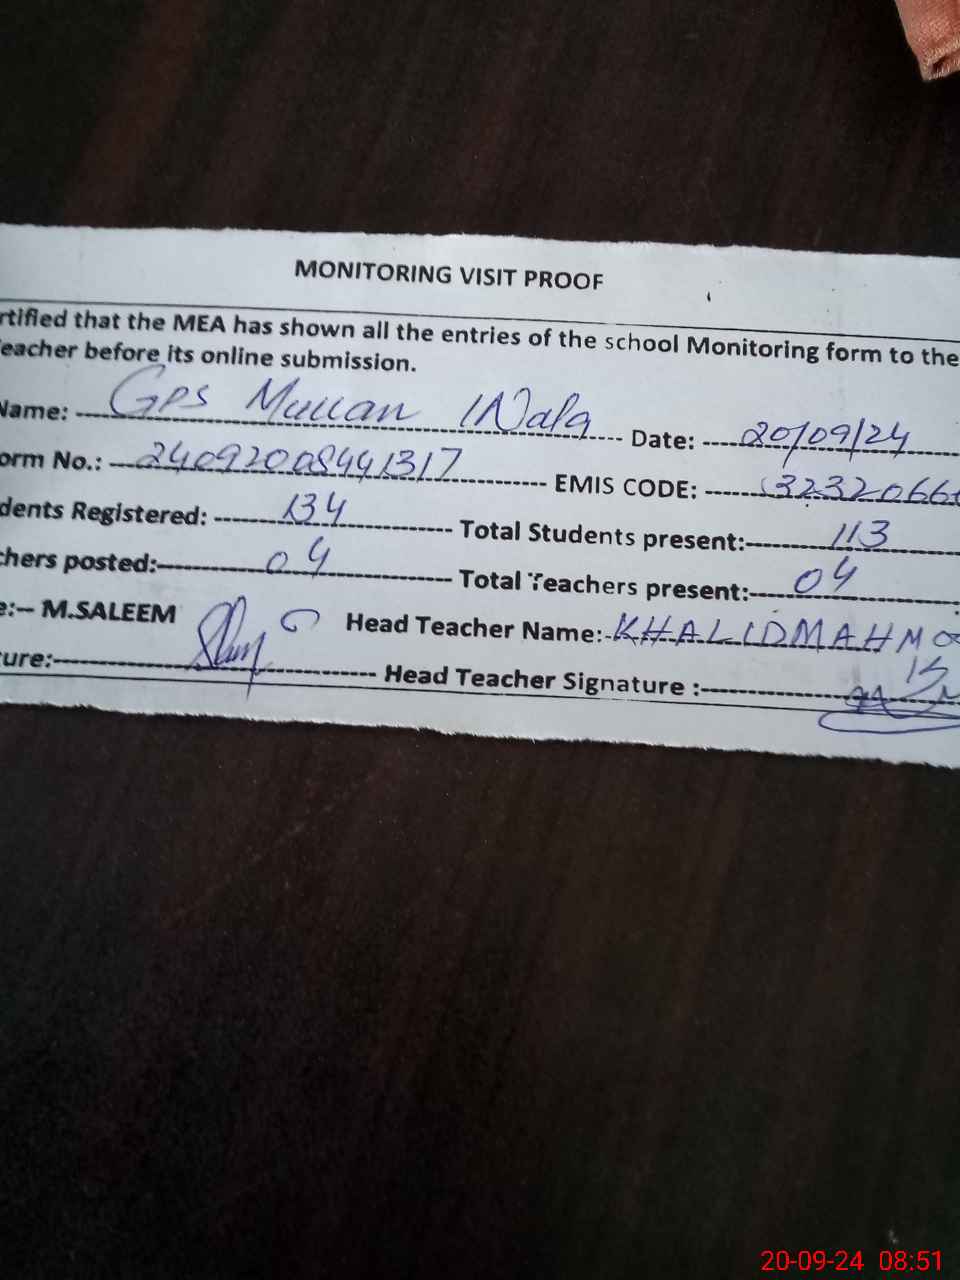 MONITORING VISIT PROOF
rtified that the MEA has shown all the entries of the school Monitoring form to the
eacher before its online submission.
Name: GPS Mullan Wala Date: 20/09/24
orm No.: 24092008441317 EMIS CODE: 3232066
dents Registered: 134 Total Students present: 113
chers posted: 04 Total Teachers present: 04
e:- M.SALEEM Head Teacher Name:- KHALIDMAHMO
ture: Head Teacher Signature :
20-09-24 08:51